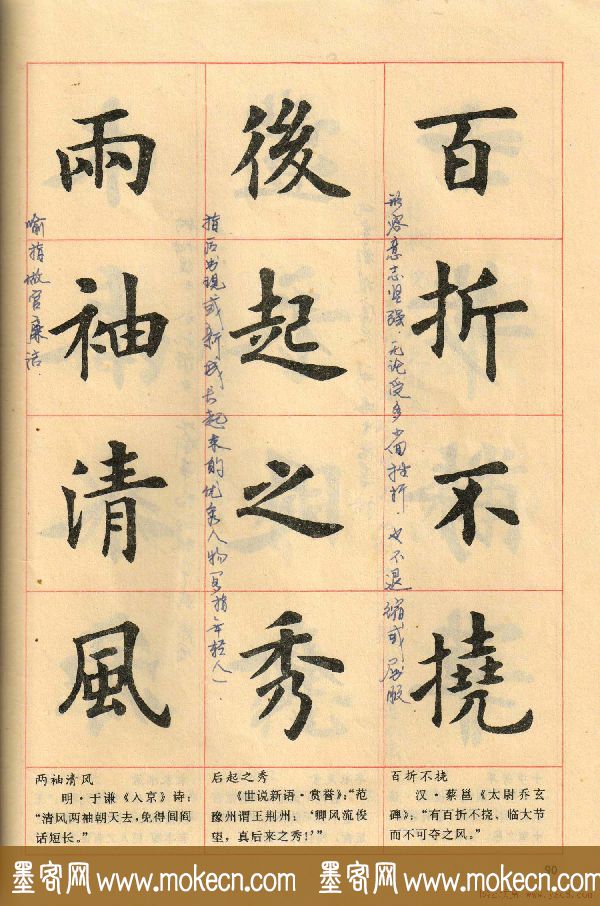 百折不撓
形容意志坚强.无论受多少回挫折 也不退缩或屈服
後起之秀
指后出现或新成长起来的优秀人物(多指年轻人).
兩袖清風
喻指做官廉洁.
百折不挠
汉·蔡邕《太尉乔玄
碑》:“有百折不挠、临大节
而不可夺之风。”
后起之秀
《世说新语·赏誉》:“范
豫州谓王荆州:‘卿风流俊
望,真后来之秀!’”
两袖清风
明·于谦《入京》诗:
“清风两袖朝天去,免得闾阎
话短长。”
90
墨客网 www.mokecn.com 墨客网 www.mokecn.com